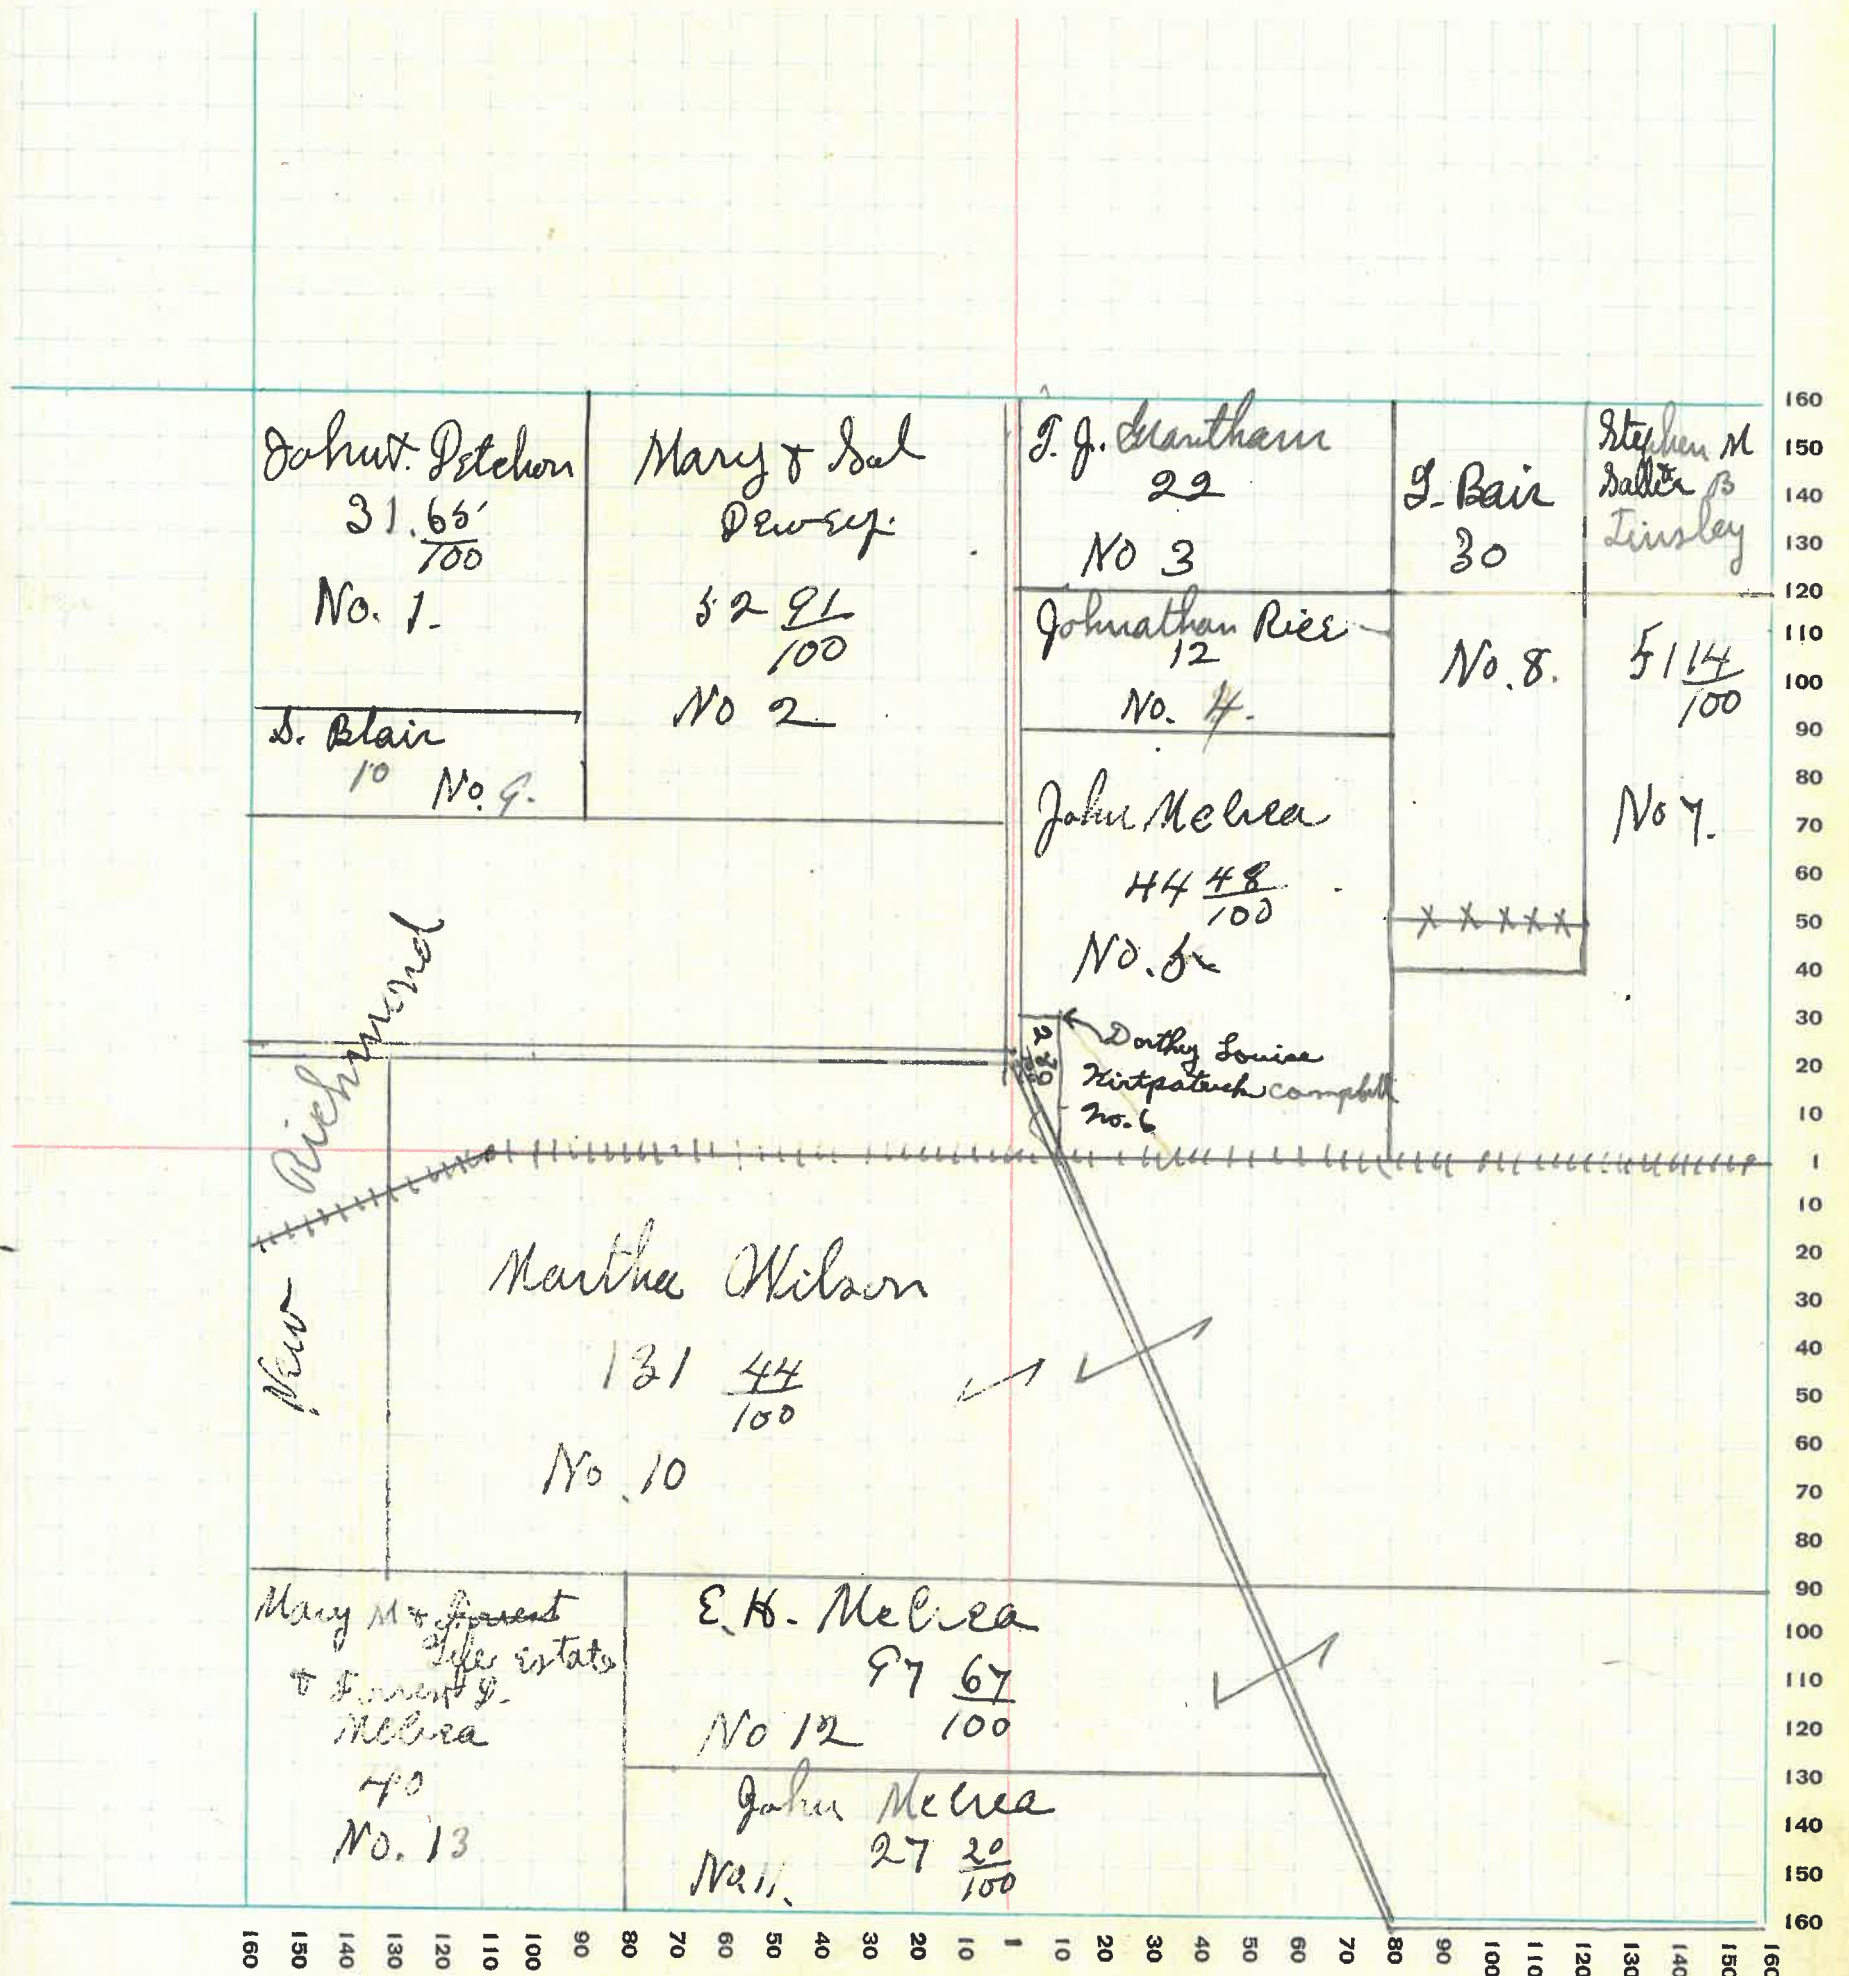 John F. Petchon
31.65/100
No. 1.
S. Blair
10
No. 9.
Mary & Sol
Dewey.
52 91/100
No 2
T. J. Grantham
22
No 3
Johnathan Rice
12
No. 4.
John McCrea
44 48/100
No. 5
2 30/100
Dorthy Louise
Kirkpatrick Campbell
No. 6
I. Bair
30
No. 8.
Stephen M
& Sallie B
Tinsley
51 14/100
No 7.
New Richmond
Martha Wilson
131 44/100
No. 10
Mary M & Forrest
Life Estate
& Forrest D.
McCrea
40
No. 13
E. H. McCrea
97 67/100
No 12
John McCrea
27 20/100
No. 11.
160
150
140
130
120
110
100
90
80
70
60
50
40
30
20
10
1
10
20
30
40
50
60
70
80
90
100
110
120
130
140
150
160
160 150 140 130 120 110 100 90 80 70 60 50 40 30 20 10 1 10 20 30 40 50 60 70 80 90 100 110 120 130 140 150 160